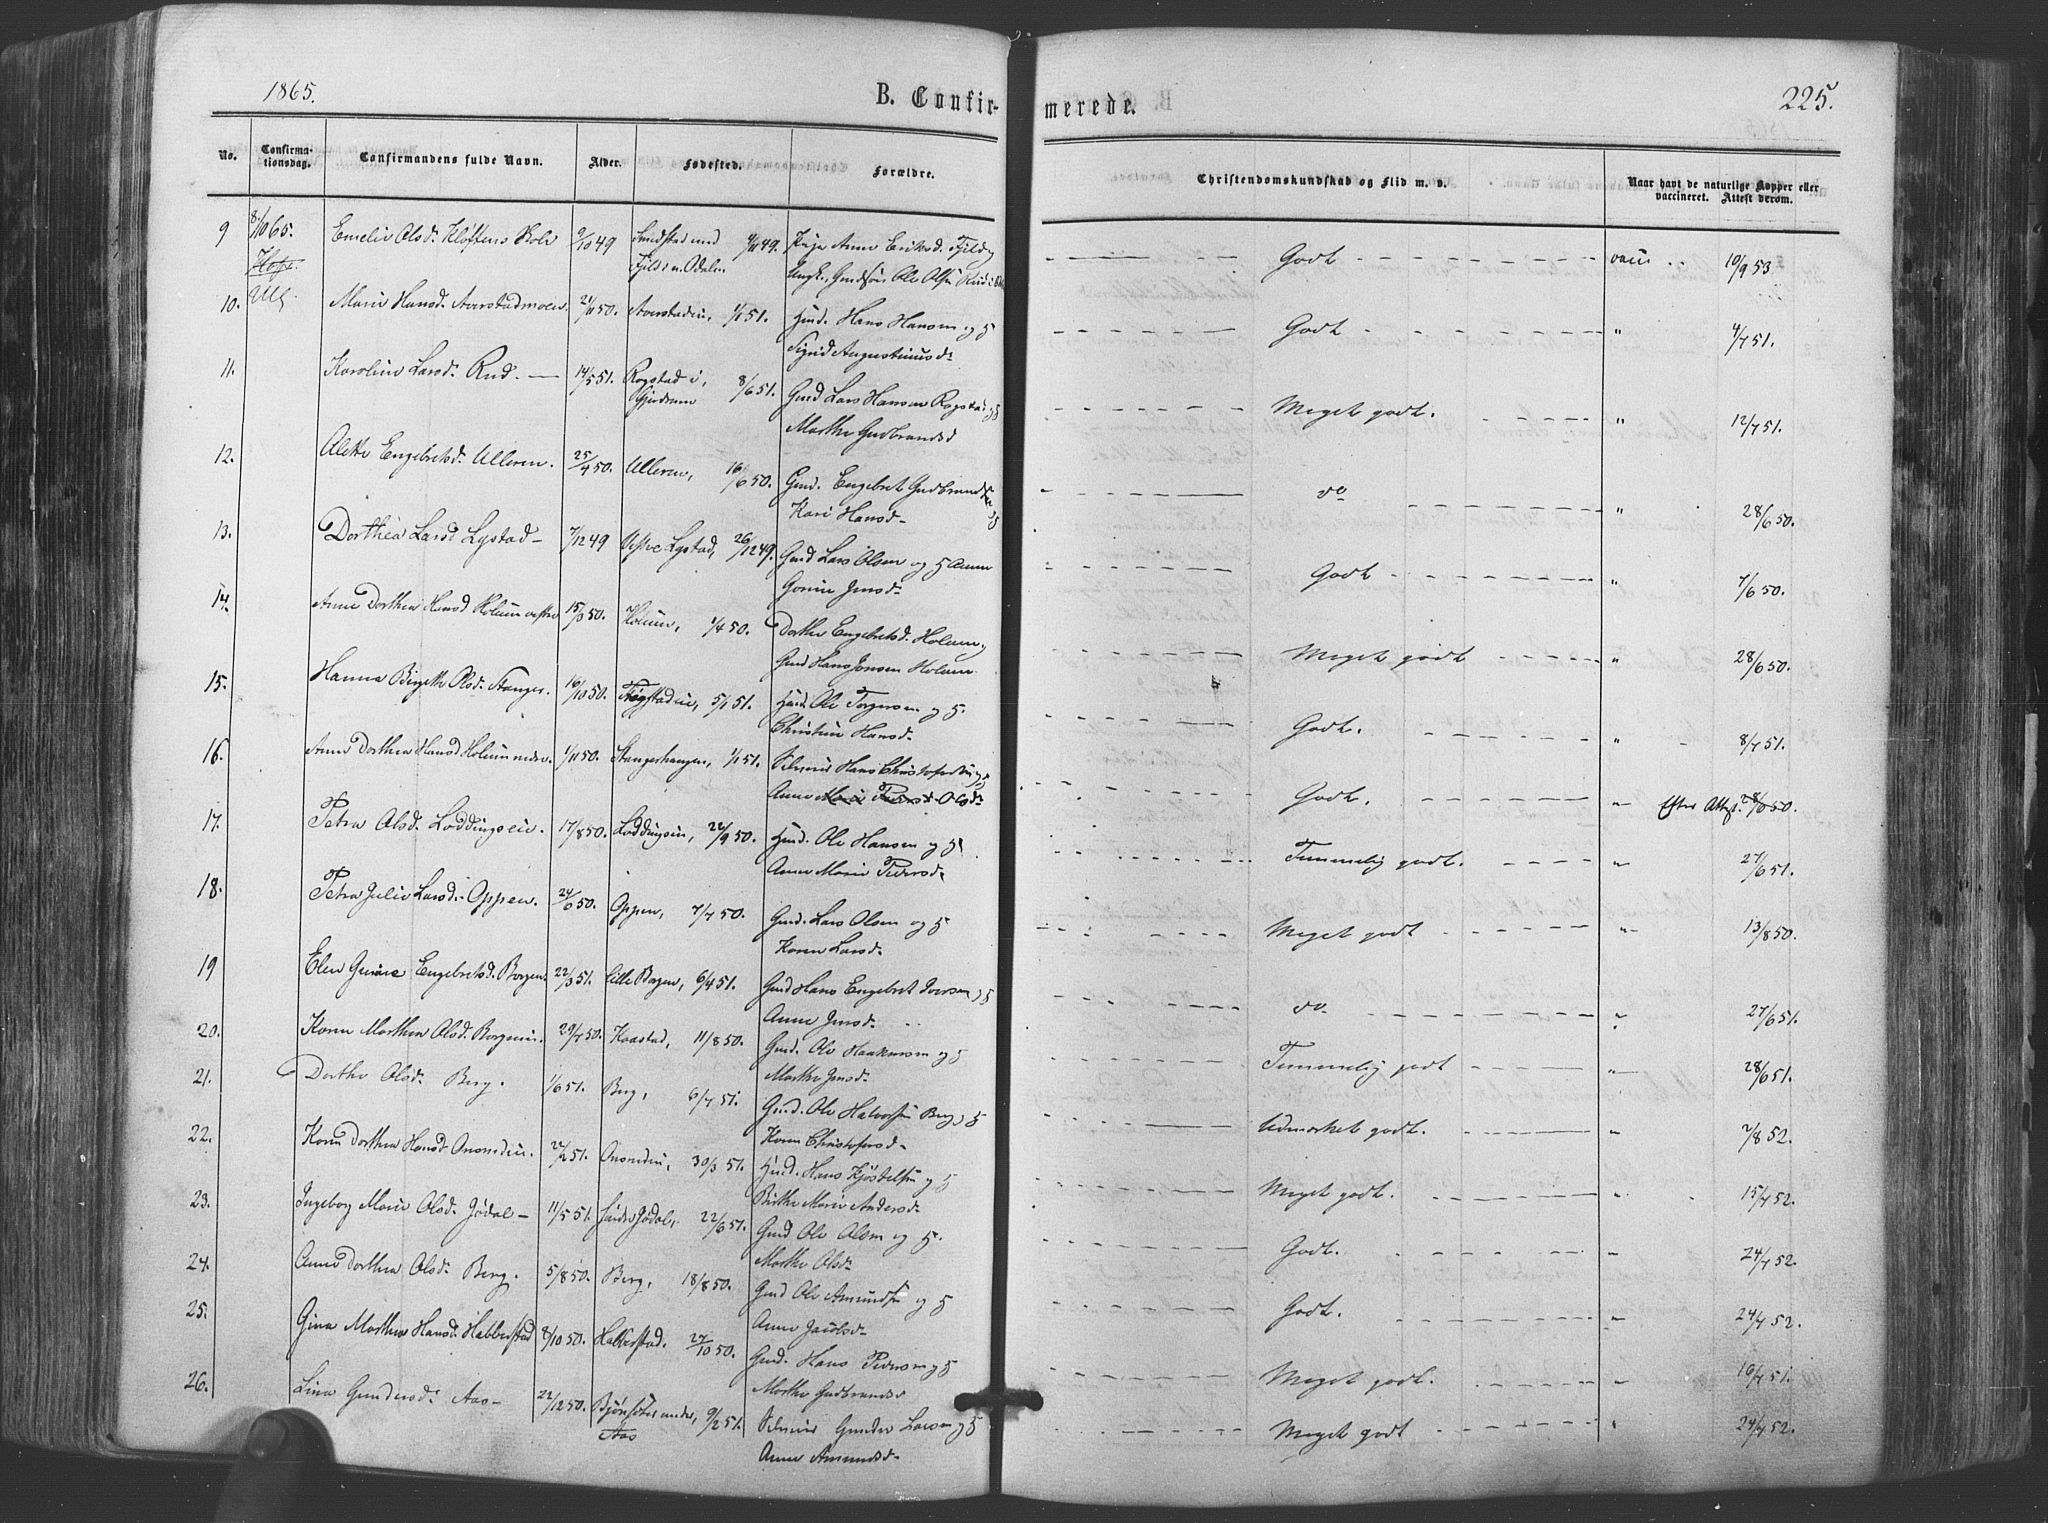 1865.
B. Confir-
merede.
225.
No.
Confirma-
tionsdag.
Confirmandens fulde Navn.
Alder.
Fødested.
Forældre.
Christendomskundskab og Flid m. v.
Naar havt de naturlige Kopper eller
vaccineret. Attest derom.
9 8/10 65. Emelie Olsd. Kloftens 9/10 49 Sundstad 4/11 49. Pige Anne Eriksd. Fjeld Godt vacc 10/9 53
Ull. Fjeld i n. Odalen Ungk. Ole Olsen
10. Marie Hansd. Aarstadmoen 21/11 50. Aarstadeie, 1/1 51. Huusm. Hans Hansen og H Godt " 4/7 51.
Sigrid Augustinusd.
11. Karoline Larsd. Rud. 14/5 51. Rogstad i, 8/6 51. Gmd Lars Hansen Rogstad og H Meget godt. " 12/7 51.
Gjerdrum Marthe Gudbrandsd
12. Alette Engebretsd. Ulleren. 25/4 50. Ulleren, 16/6 50. Gmd. Engebret Gudbrandsen og H do " 28/6 50.
Kari Hansd.
13. Dorthea Larsd Lystad 7/12 49 Vestre Lystad, 26/12 49. Gmd Lars Olsen og H Anne Godt " 7/6 50.
Gorine Jensd.
14. Anne Dorthea Hansd Holum vestre 15/3 50. Holum, 1/4 50. Dorthea Engebretsd. Holum, Meget godt " 28/6 50.
Gmd Hans Jensen Holum
15. Hanna Birgitte Olsd. Stanger. 16/10 50. Frogstadeie, 5/1 51. Huusm. Ole Torgersen og H. Godt. " 8/7 51.
Christine Hansd.
16. Anne Dorthea Hansd Holum nedre. 1/11 50. Stangerhaugen, 1/1 51. Selveier Hans Christofersen og H Godt. " Efter Attest. 28/6 50.
Anne Olsd.
17. Petra Olsd. Loddingseie. 17/8 50. Loddingseie, 22/9 50. Huusm. Ole Hansen og H Temmelig godt. " 27/6 51.
Anne Marie Pedersd.
18. Petra Julie Larsd. Oppen. 24/6 50. Oppen, 7/7 50. Gmd. Lars Olsen og H Meget godt " 13/8 50.
Karen Larsd.
19 Elen Engebretsd. Borgen. 22/3 51. Lille Borgen, 6/4 51. Gmd Hans Engebret Iversen og H do " 27/6 51.
Anne Jensd.
20. Karen Marthea Olsd. Borgeneie. 29/7 50. Kaastad, 11/8 50. Gmd. Ole Haakensen og H Temmelig godt " 28/6 51.
Marthe Jensd.
21. Dorthe Olsd. Berg. 1/6 51. Berg, 6/7 51. Gmd. Ole Halvorsen Berg og H Udmærket godt. " 2/8 52.
Karen Christofersd.
22. Karen Dorthea Hansd 22/2 51. 30/3 51. Huusm. Hans Kjøstelsen og H Meget godt. " 15/7 52.
Birthe Marie Andersd.
23. Ingeborg Marie Olsd. Jødal 11/5 51. Søndre Jødal, 22/6 51. Gmd Ole Olsen og H. Godt. " 24/7 52.
Marthe Olsd.
24. Anne Dorthea Olsd. Berg. 5/8 50. Berg, 18/8 50. Gmd Ole Amundsen og H Godt. " 24/7 52.
Anne Jacobsd.
25. Gina Marthea Hansd. Habberstad 8/10 50. Habberstad. 27/10 50. Gmd. Hans Pedersen og H Meget godt. " 16/7 51.
Marthe Gudbrandsd
26. Lina Gundersd. Aas 22/12 50. 9/2 51. Selveier Gunder Larsen og H Meget godt " 24/7 52.
Aas Anne Amundsd.